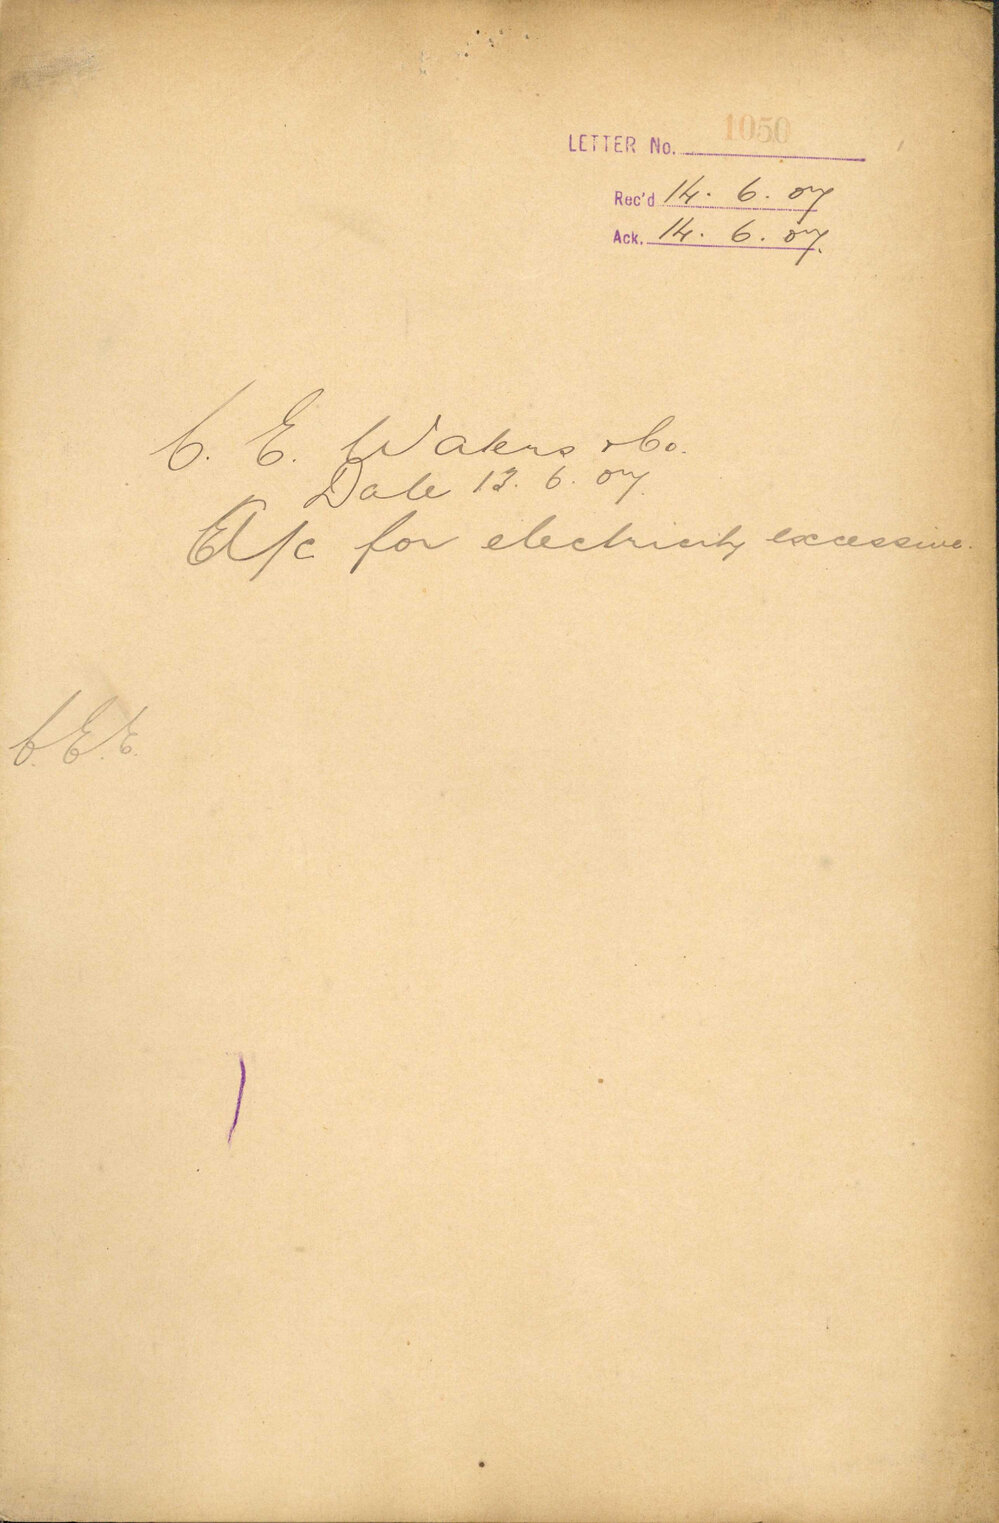 LETTER No. 1050
Rec'd 14. 6. 07
Ack. 14. 6. 07.
C. E. Waters & Co.
Date 13. 6. 07.
A/c for electricity excessive.
C. E. E.